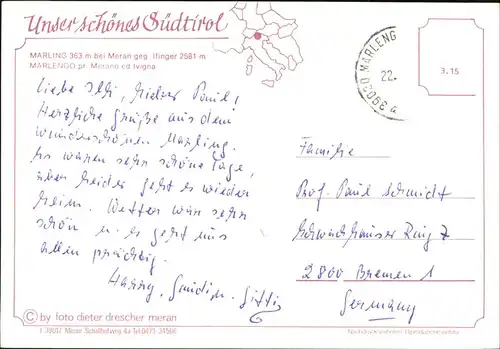 Unser schönes Südtirol
MARLING 363 m bei Meran geg. Ifinger 2581 m
MARLENGO pr. Merano ed Ivigna
39020 MARLENG
22.
a
3.15
Liebe Illi, lieber Paul!
Herzliche Grüße aus dem
wunderschönen Marling.
Es waren sehr schöne Tage,
aber leider geht es wieder
heim. Wetter war sehr
schön u. es geht uns
allen prächtig.
Harry,
Familie
Prof. Paul Schmidt
Schwachhauser Ring 7
2800 Bremen 1
Germany
© by foto dieter drescher meran